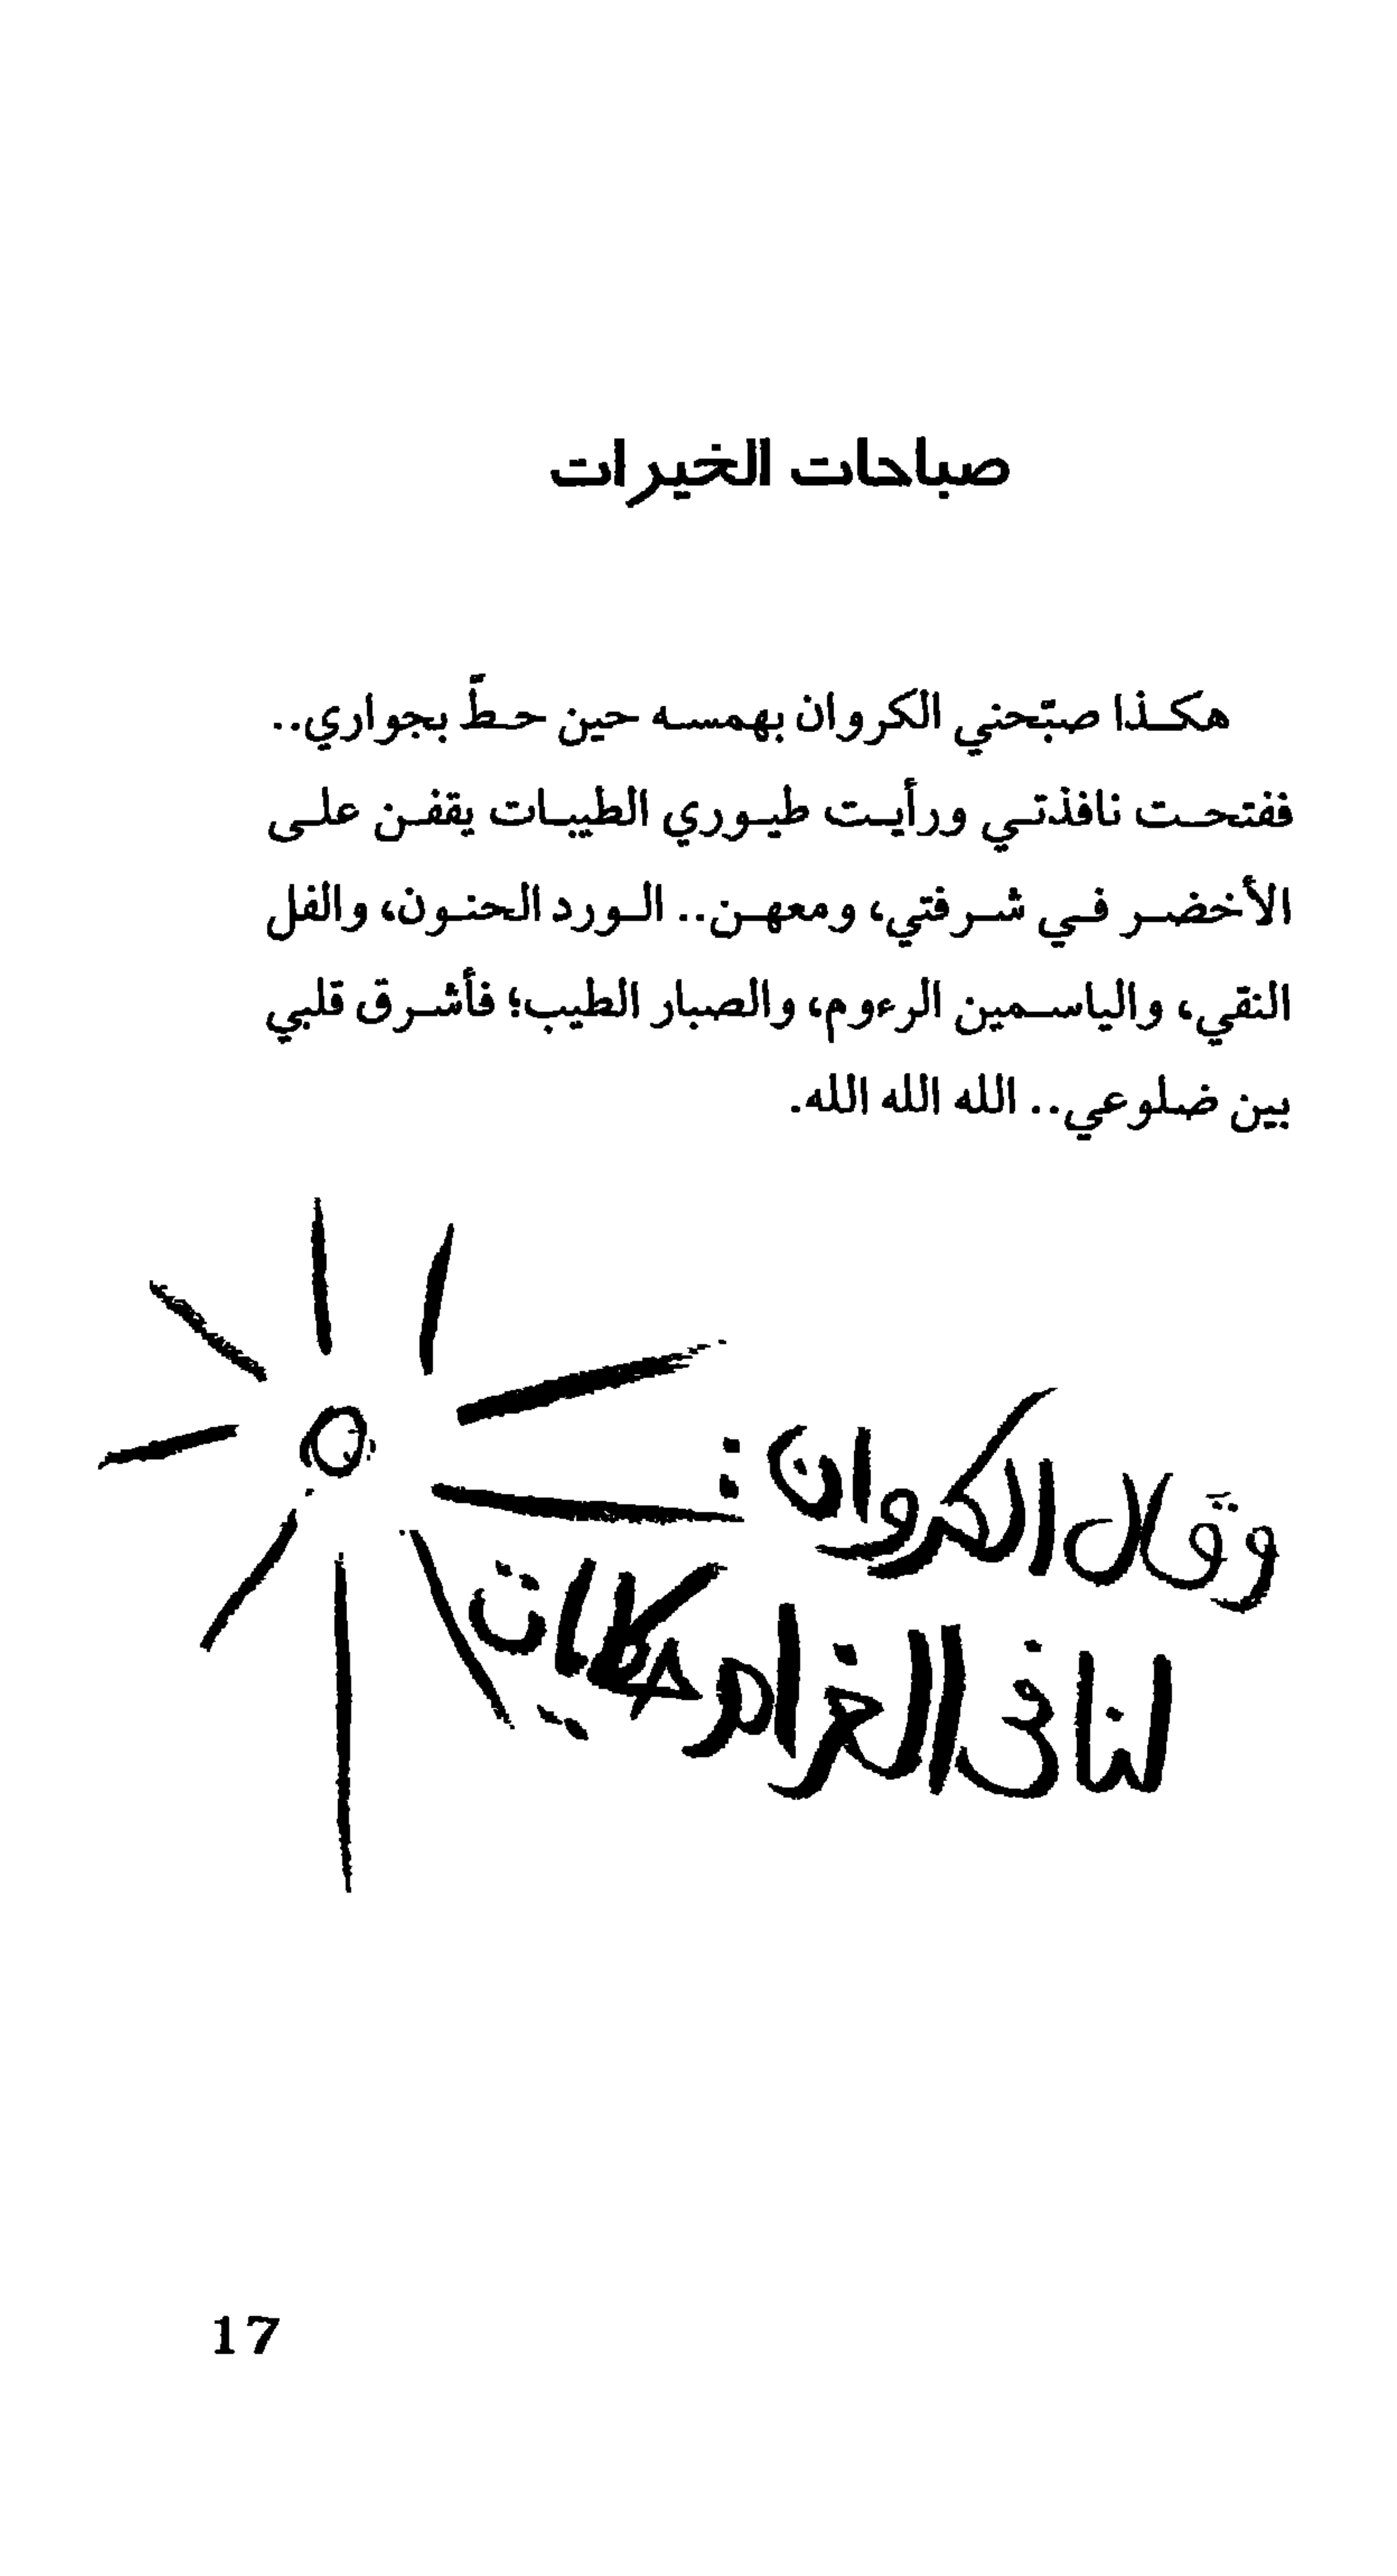 صباحات الخيرات
هكذا صبّحني الكروان بهمسه حين حطّ بجواري..
ففتحت نافذتي ورأيت طيوري الطيبات يقفن على
الأخضر في شرفتي، ومعهن.. الورد الحنون، والفل
النقي، والياسمين الرءوم، والصبار الطيب؛ فأشرق قلبي
بين ضلوعي.. الله الله الله.
وقال الكروان:
لنا فى الغرام حكايات
17